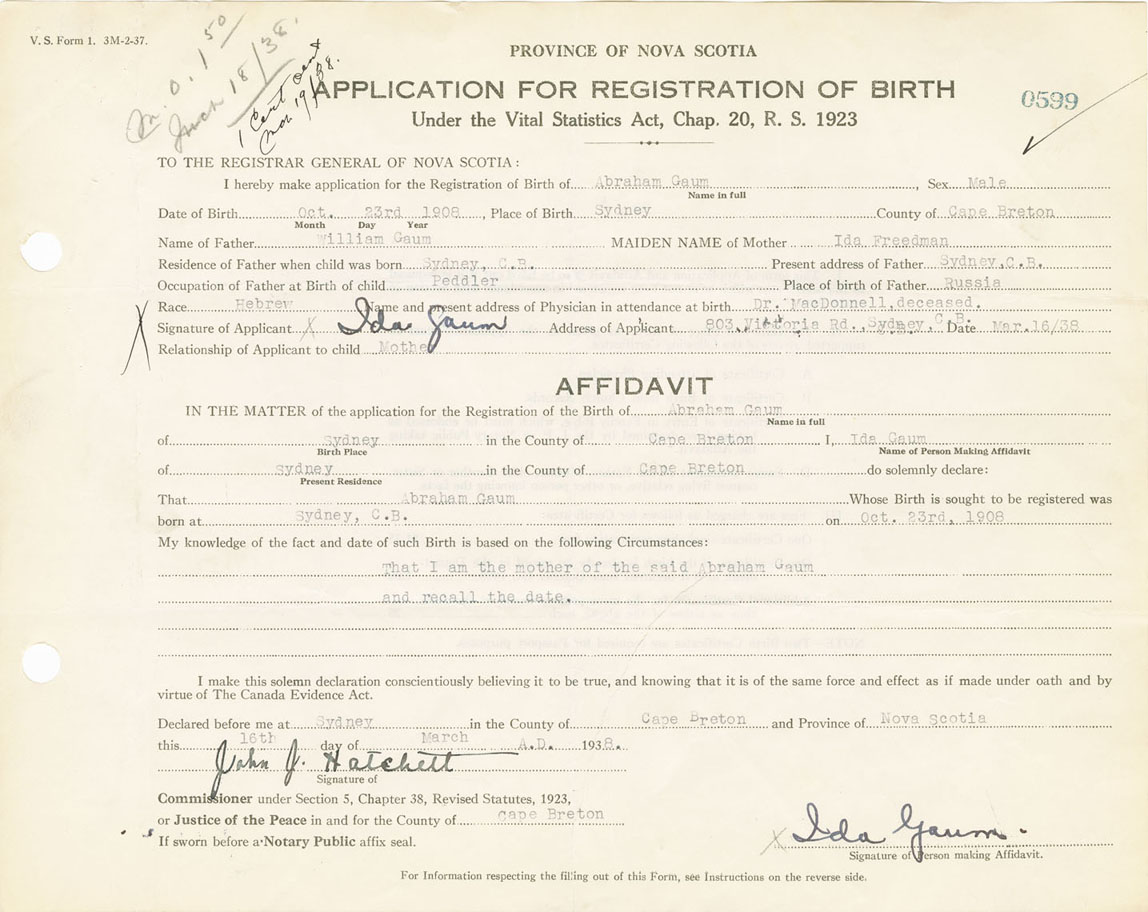 V. S. Form 1. 3M-2-37.
M.O. 1 50
Mch 18/38.
1 Cert sent
Mar 19/38.
PROVINCE OF NOVA SCOTIA
APPLICATION FOR REGISTRATION OF BIRTH
0599
Under the Vital Statistics Act, Chap. 20, R. S. 1923
TO THE REGISTRAR GENERAL OF NOVA SCOTIA:
I hereby make application for the Registration of Birth of Abraham Gaum, Sex Male
Name in full
Date of Birth Oct. 23rd 1908, Place of Birth Sydney County of Cape Breton
Month Day Year
Name of Father William Gaum MAIDEN NAME of Mother Ida Freedman
Residence of Father when child was born Sydney, C.B. Present address of Father Sydney,C.B.
Occupation of Father at Birth of child Peddler Place of birth of Father Russia
Race Hebrew Name and present address of Physician in attendance at birth Dr. MacDonnell,deceased.
Signature of Applicant X Ida Gaum Address of Applicant 803, Victoria Rd., Sydney, C.B. Date Mar.16/38
Relationship of Applicant to child Mother
AFFIDAVIT
IN THE MATTER of the application for the Registration of the Birth of Abraham Gaum
Name in full
of Sydney in the County of Cape Breton I, Ida Gaum
Birth Place Name of Person Making Affidavit
of Sydney in the County of Cape Breton do solemnly declare:
Present Residence
That Abraham Gaum Whose Birth is sought to be registered was
born at Sydney, C.B. on Oct. 23rd, 1908
My knowledge of the fact and date of such Birth is based on the following Circumstances:
That I am the mother of the said Abraham Gaum
and recall the date.
I make this solemn declaration conscientiously believing it to be true, and knowing that it is of the same force and effect as if made under oath and by
virtue of The Canada Evidence Act.
Declared before me at Sydney in the County of Cape Breton and Province of Nova Scotia
this 16th day of March A.D. 1938.
John J. Hatchett
Signature of
Commissioner under Section 5, Chapter 38, Revised Statutes, 1923,
or Justice of the Peace in and for the County of Cape Breton
If sworn before a Notary Public affix seal.
X Ida Gaum.
Signature of Person making Affidavit.
For Information respecting the filling out of this Form, see Instructions on the reverse side.